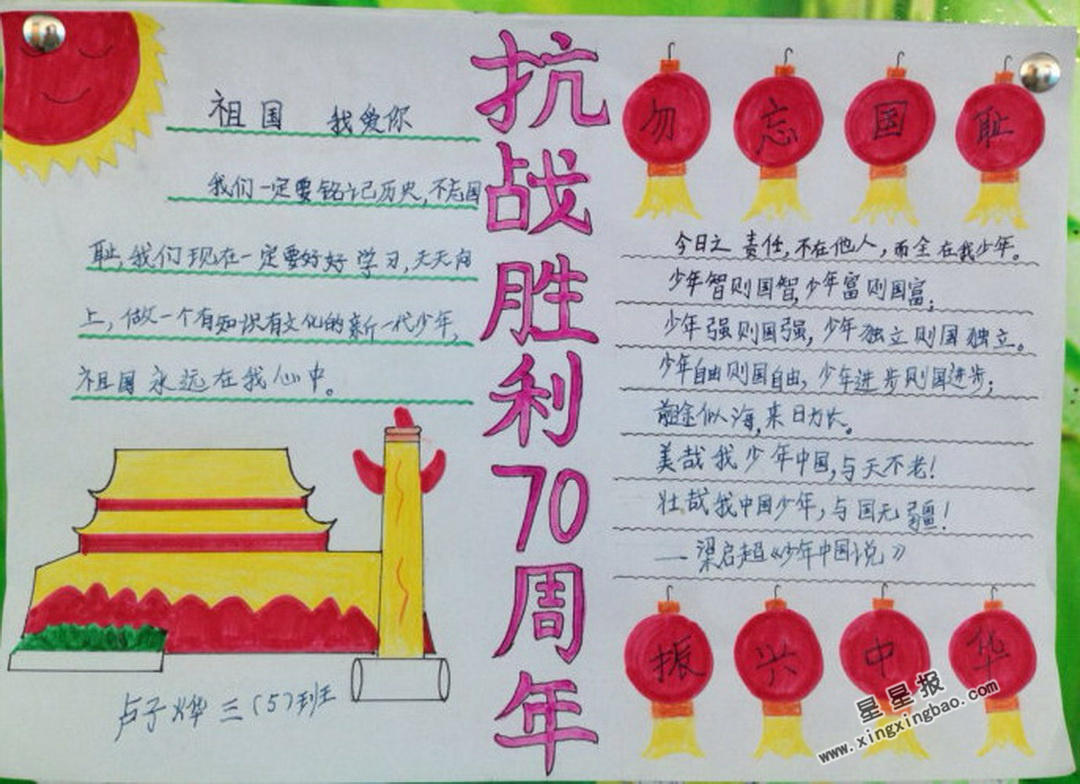 抗战胜利70周年
祖国 我爱你
我们一定要铭记历史,不忘国
耻,我们现在一定要好好学习,天天向
上,做一个有知识有文化的新一代少年,
祖国永远在我心中。
卢子烨 三(5)班
勿忘国耻
今日之责任,不在他人,而全在我少年。
少年智则国智,少年富则国富;
少年强则国强,少年独立则国独立。
少年自由则国自由,少年进步则国进步;
前途似海,来日方长。
美哉我少年中国,与天不老!
壮哉我中国少年,与国无疆!
——梁启超《少年中国说》
振兴中华
星星报
www.xingxingbao.com